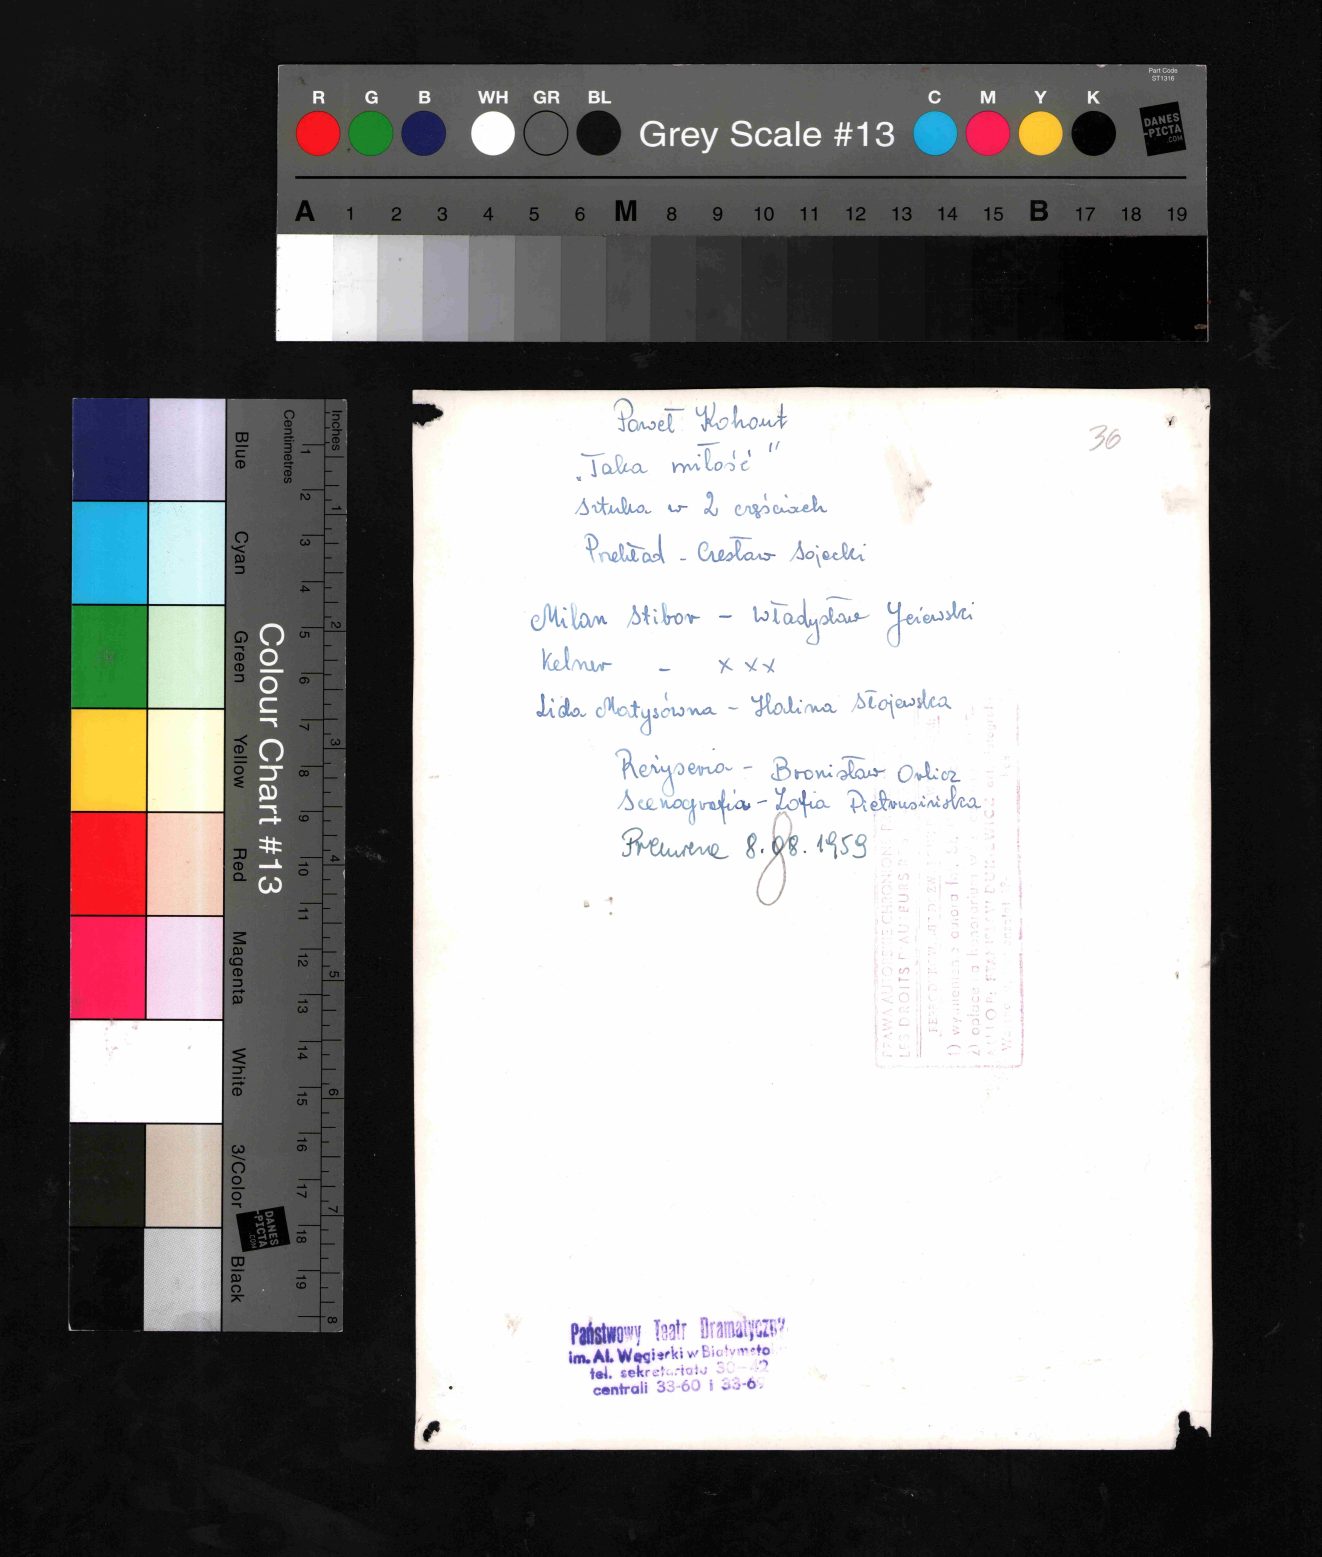 Part Code
ST1316
R G B WH GR BL Grey Scale #13 C M Y K
DANES
-PICTA
.COM
A 1 2 3 4 5 6 M 8 9 10 11 12 13 14 15 B 17 18 19
Paweł Kohout
„Taka miłość"
Sztuka w 2 częściach
Przekład - Czesław Sojecki
36
Milan Stibor - Władysław Jeżewski
Kelner - x x x
Lida Matysówna - Halina Słojewska
Reżyseria - Bronisław Orlicz
Scenografia - Zofia Pietrusińska
Premiera 8.08.1959
8
LES DROITS D'AU
1) wymienienia autora
2)
Państwowy Teatr Dramatyczny
im. Al. Węgierki w Białymsto
tel. sekretariatu 30-42
centrali 33-60 i 33-6
Colour Chart #13
Blue Cyan Green Yellow Red Magenta White 3/Color Black
DANES
-PICTA
.COM
Centimetres 1 2 3 4 5 6 7 8 9 10 11 12 13 14 15 16 17 18 19
Inches 1 2 3 4 5 6 7 8